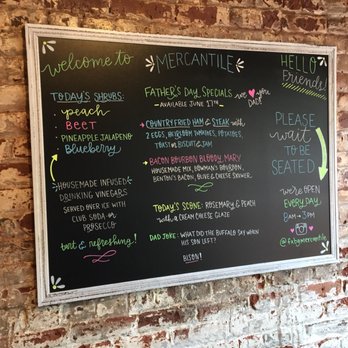 welcome to MERCANTILE
HELLO
Friends!
TODAY'S SHRUBS:
peach
BEET
PINEAPPLE JALAPENO
blueberry
HOUSEMADE INFUSED
DRINKING VINEGARS
SERVED OVER ICE WITH
CLUB SODA or
PROSECCO
tart & refreshing!
FATHER'S DAY SPECIALS
- AVAILABLE JUNE 17TH -
we
you
DAD!
COUNTRY FRIED HAM & STEAK with
2 EGGS, HEIRLOOM TOMATOES, POTATOES,
TOAST or BISCUIT & JAM
BACON BOURBON BLOODY MARY
HOUSEMADE MIX, BOWMAN'S BOURBON,
BENTON'S BACON, OLIVE & CHEESE SKEWER
TODAY'S SCONE: ROSEMARY & PEACH
with a CREAM CHEESE GLAZE
DAD JOKE: WHAT DID THE BUFFALO SAY WHEN
HIS SON LEFT?
BISON!
PLEASE
wait
to BE
SEATED
we're OPEN
EVERY DAY
8AM → 3PM
@fxbgmercantile